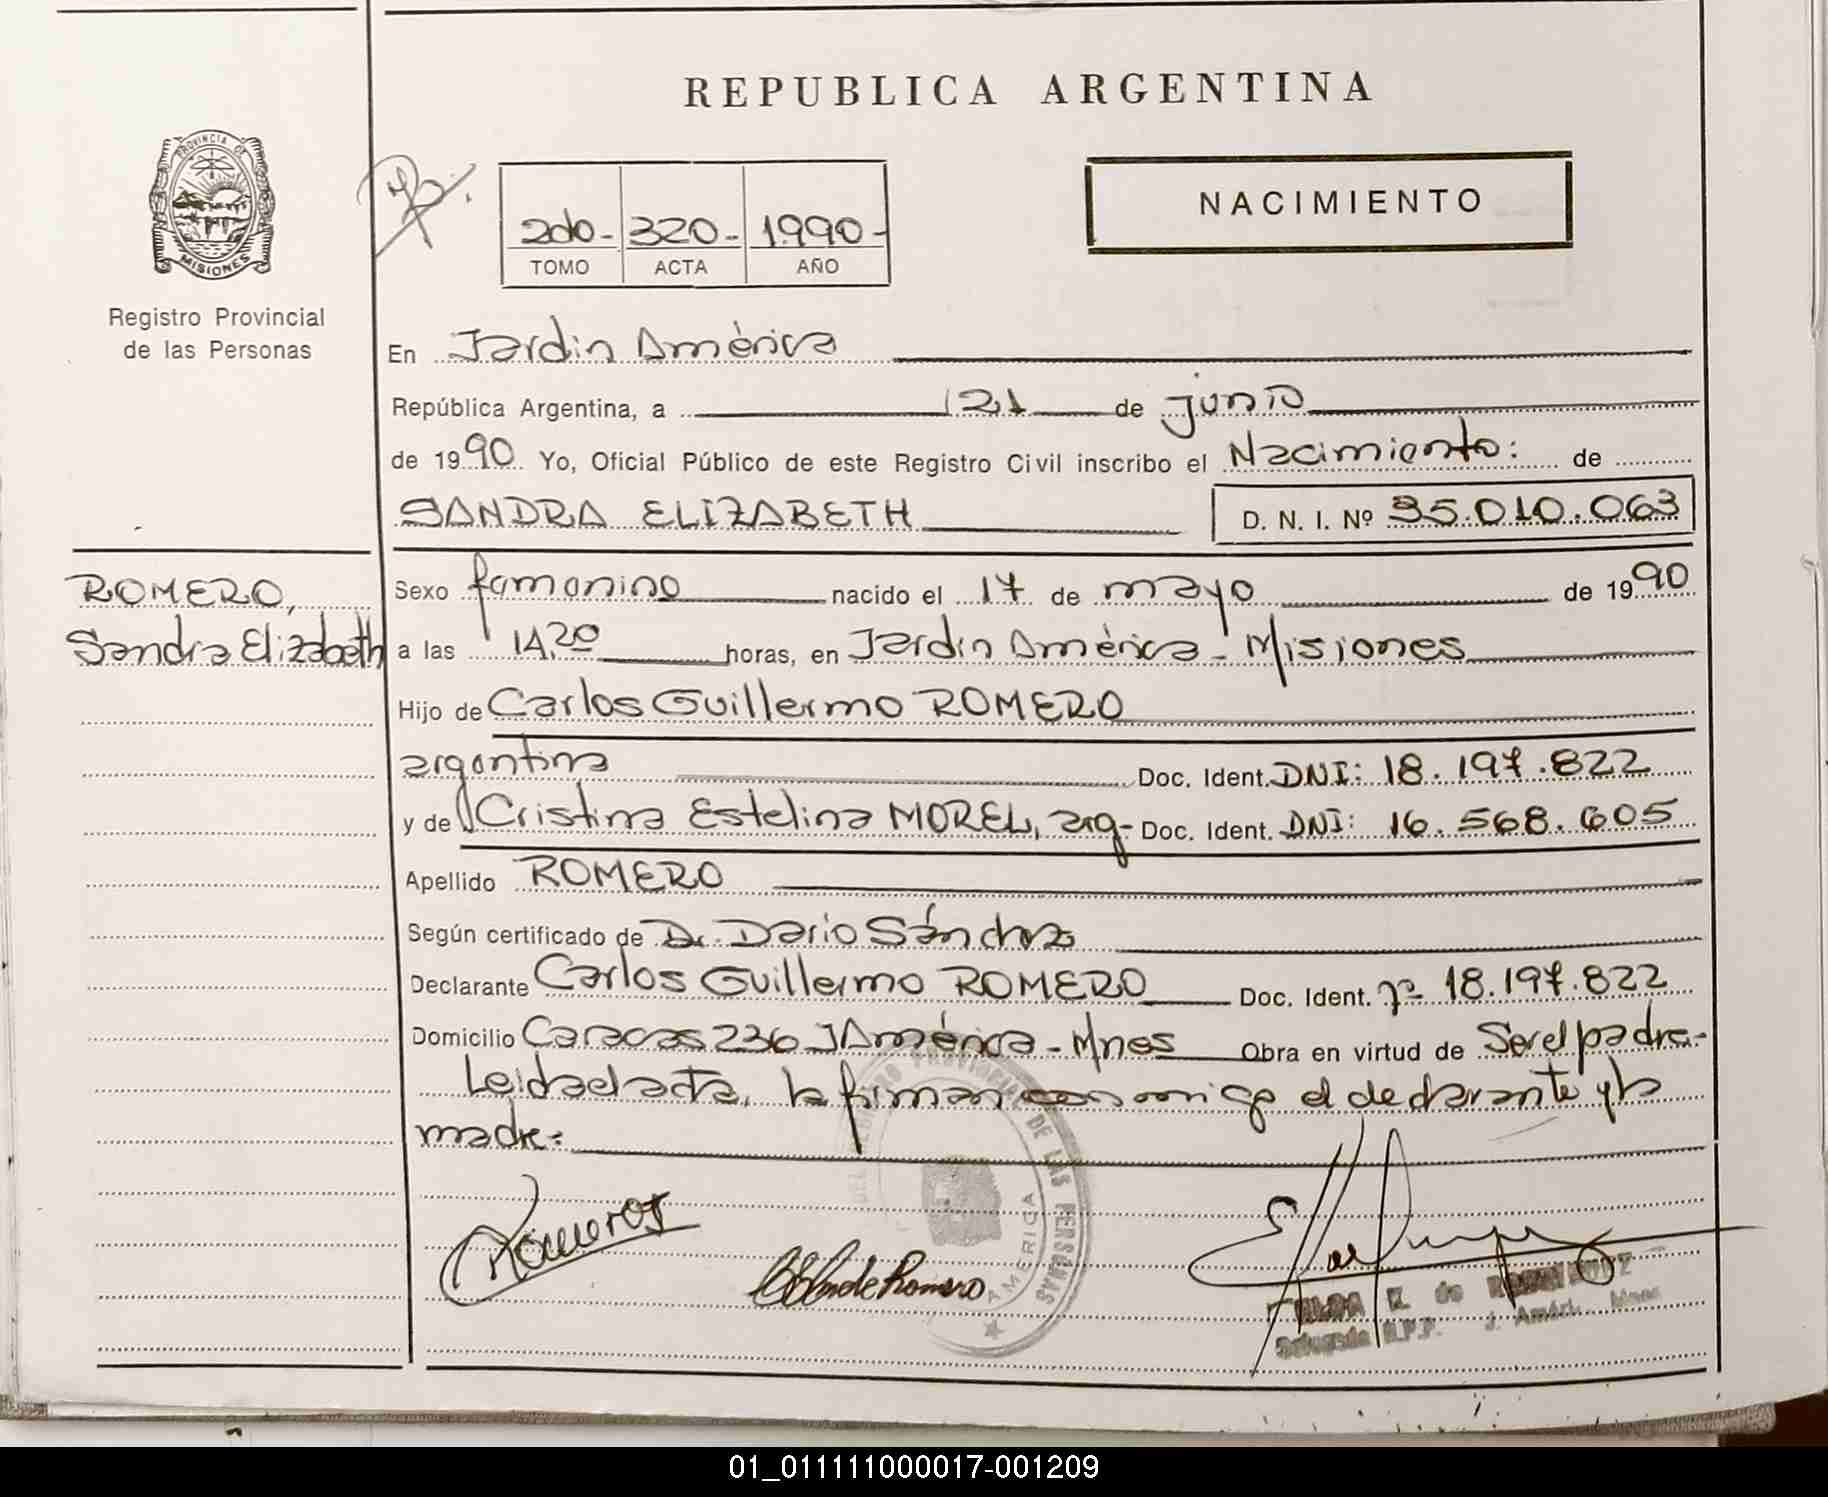 REPUBLICA ARGENTINA
PROVINCIA DE
MISIONES
Registro Provincial
de las Personas
2do- 320- 1990-
TOMO ACTA AÑO
NACIMIENTO
En Jardín América
República Argentina, a 21 de junio
de 1990 Yo, Oficial Público de este Registro Civil inscribo el Nacimiento: de
SANDRA ELIZABETH D. N. I. Nº 35.010.063
ROMERO,
Sandra Elizabeth
Sexo femenino nacido el 17 de mayo de 1990
a las 14,20 horas, en Jardín América - Misiones
Hijo de Carlos Guillermo ROMERO
argentina Doc. Ident. DNI: 18.197.822
y de Cristina Estelina MOREL, arg- Doc. Ident. DNI: 16.568.605
Apellido ROMERO
Según certificado de Dr. Dario Sánchez
Declarante Carlos Guillermo ROMERO Doc. Ident. nº 18.197.822
Domicilio Caracas 236 J América - Mnes Obra en virtud de Ser el padre.-
Leida el acta, la firman conmigo el declarante y la
madre:
DE LAS PERSONAS
AMERICA
Romero
de Romero
de
Delegada R.P.P. J. Amér. Mnes
01_011111000017-001209